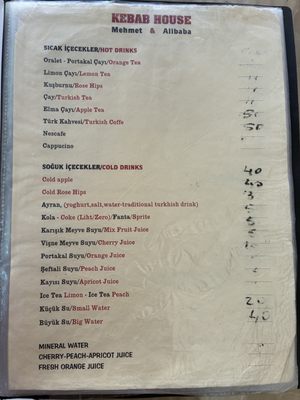 KEBAB HOUSE
Mehmet & Alibaba
SICAK İÇECEKLER/HOT DRINKS
Oralet - Portakal Çayı/Orange Tea
Limon Çayı/Lemon Tea
Kuşburnu/Rose Hips
Çay/Turkish Tea
Elma Çayı/Apple Tea
Türk Kahvesi/Turkish Coffe 50
Nescafe 50
Cappucino
SOĞUK İÇECEKLER/COLD DRINKS
Cold apple 40
Cold Rose Hips
Ayran, (yoghurt,salt,water-traditional turkhish drink)
Kola - Coke (Liht/Zero)/Fanta/Sprite
Karışık Meyve Suyu/Mix Fruit Juice
Vişne Meyve Suyu/Cherry Juice
Portakal Suyu/Orange Juice
Şeftali Suyu/Peach Juice
Kayısı Suyu/Apricot Juice
Ice Tea Limon - Ice Tea Peach
Küçük Su/Small Water 20
Büyük Su/Big Water 40
MINERAL WATER
CHERRY-PEACH-APRICOT JUICE
FRESH ORANGE JUICE